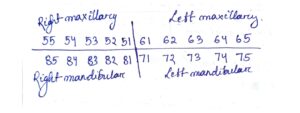 Right maxillary Left maxillary.
55 54 53 52 51 61 62 63 64 65
85 84 83 82 81 71 72 73 74 75
Right mandibular Left mandibular